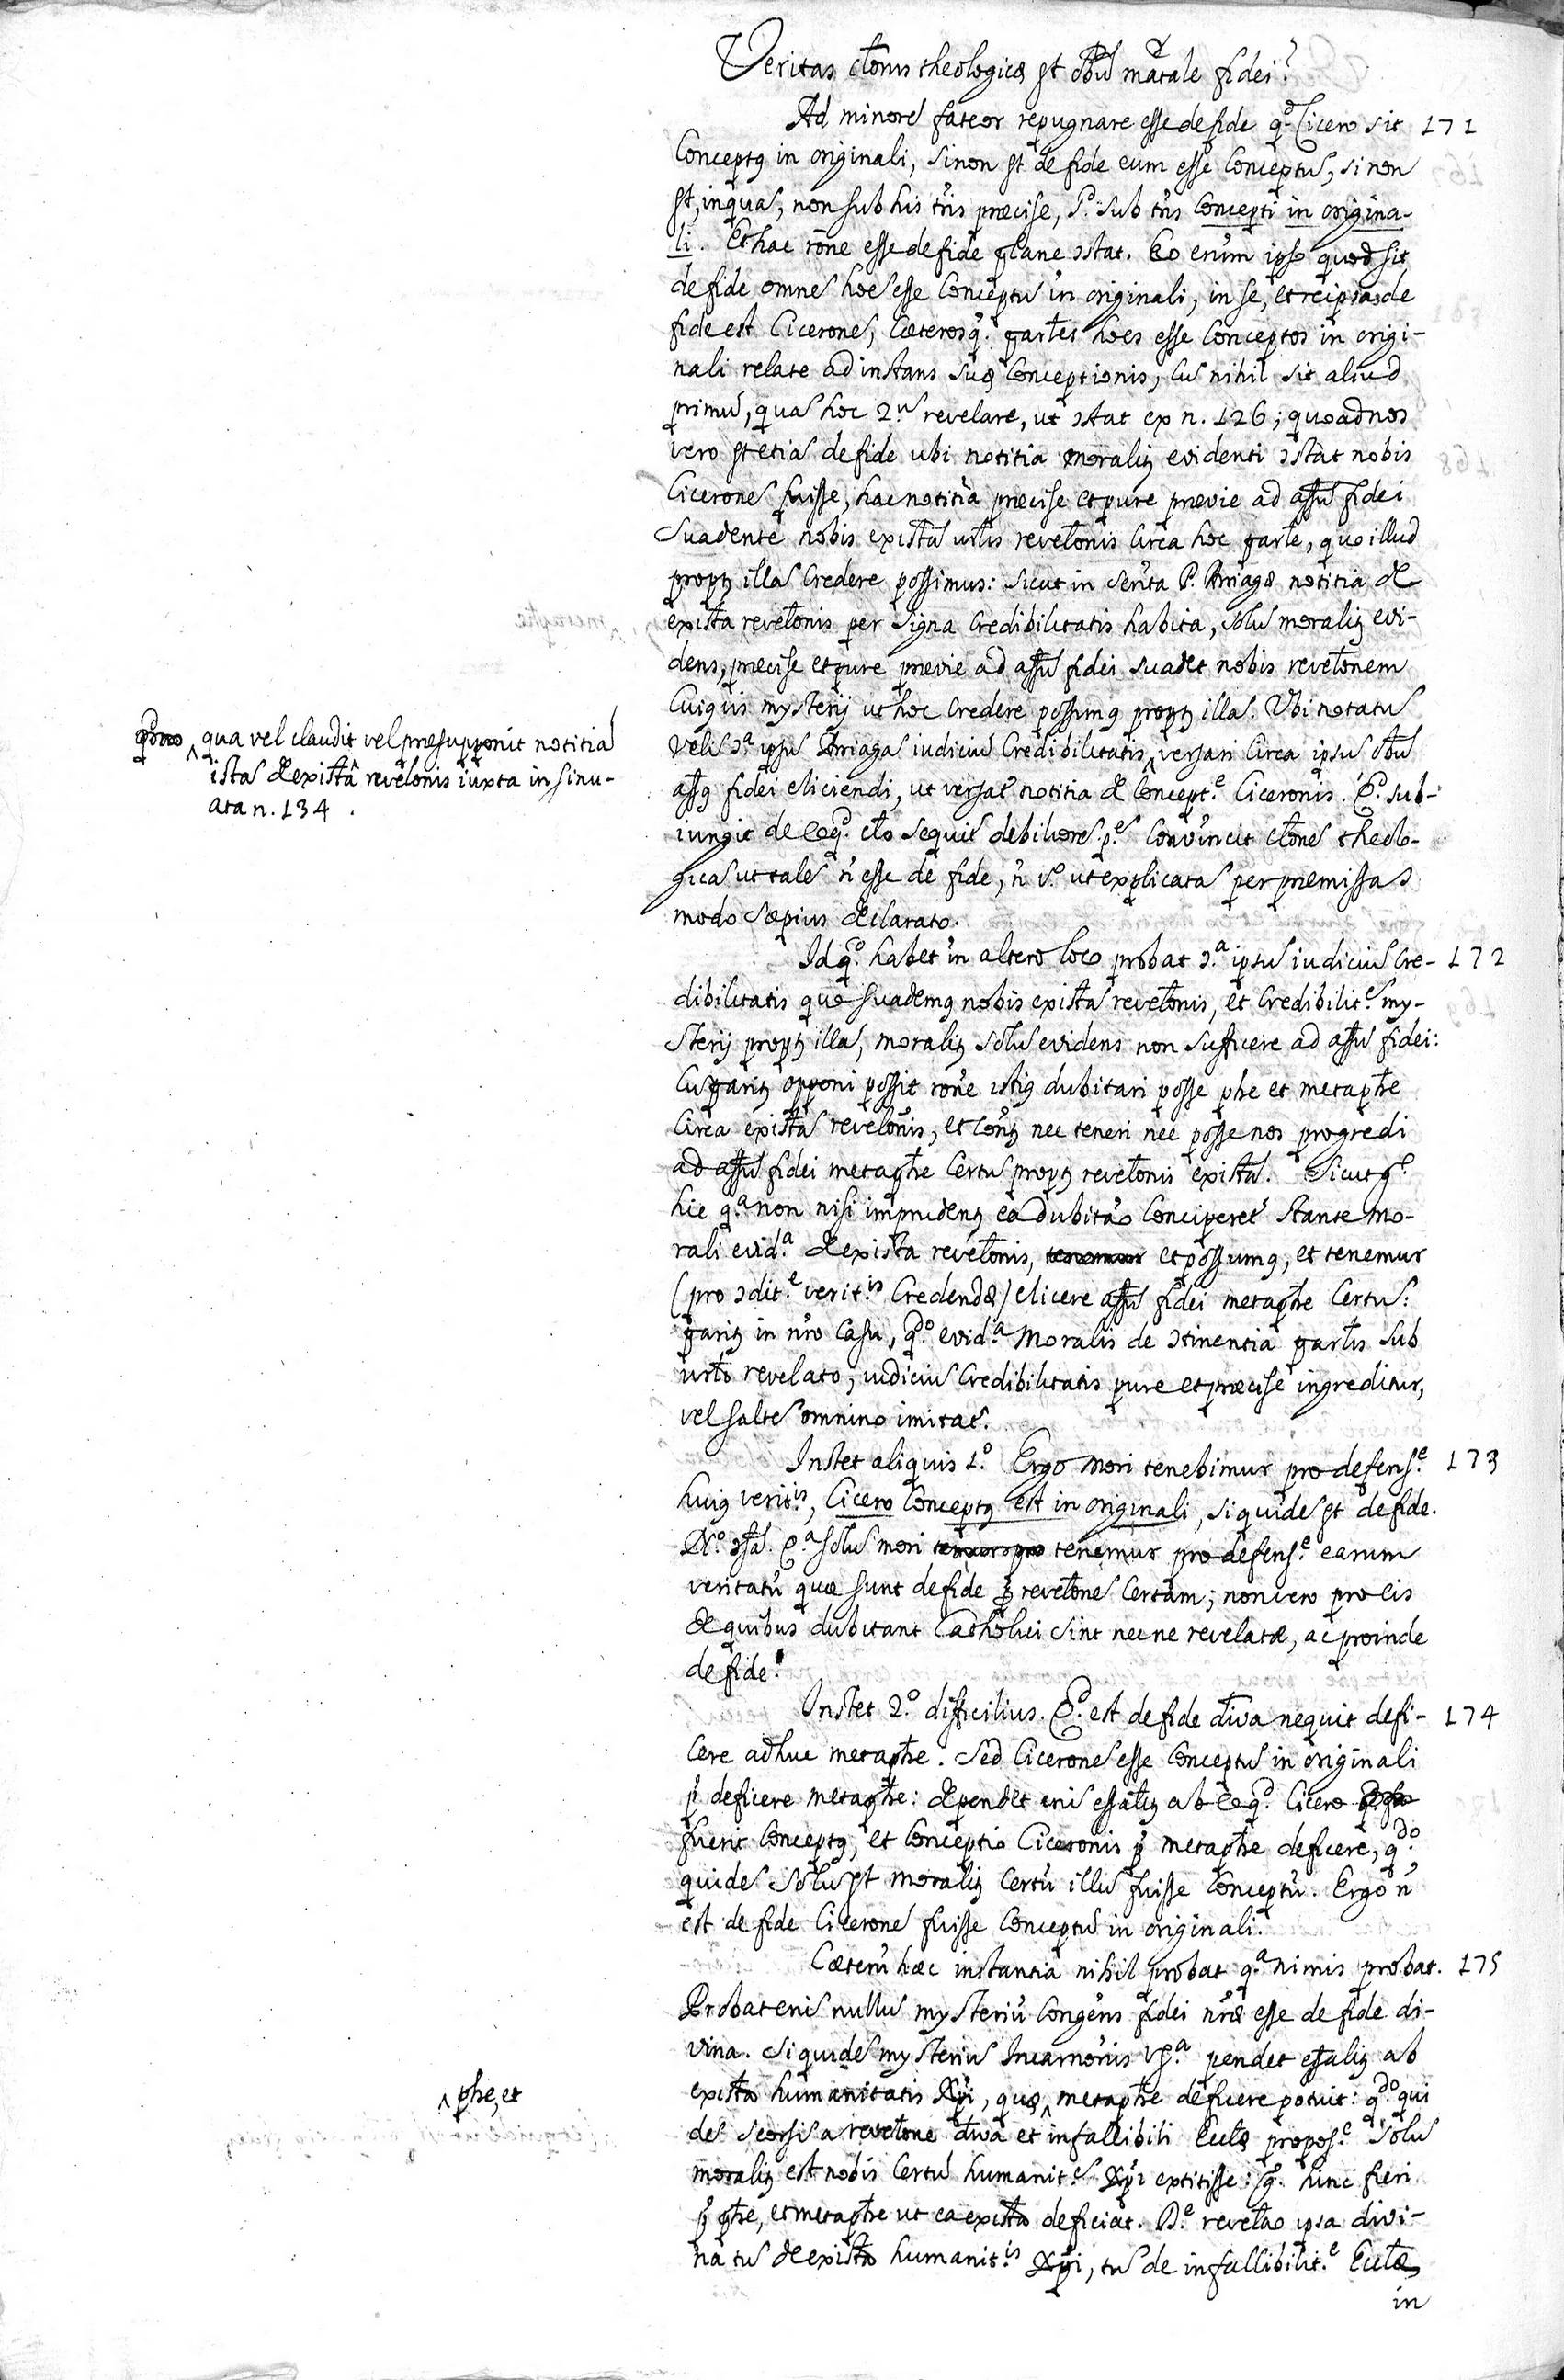 Veritas ctonis theologicæ pt obiu mãtale fidei?
Ad minore fateor repugnare esse de fide qd Cicero sit 171
Conceptus in originali, si non pt de fide eum esse Conceptu, si non
pt, inqua, non sub his tris præcise, sd. sub tris Concepti in origina-
li. Et hac rone esse de fide plane ɔstat. Eo enim ipso quod sit
de fide omne hoem esse Conceptu in originali, in se, et reipsa de
fide est Cicerone, Cæterosq. partes hoes esse Conceptos in origi-
nali relate ad instans suæ Conceptionis, Cu nihil sit aliud
primu, qua hoc 2u revelare, ut ɔstat ex n. 126; quoad nos
vero pt etia de fide ubi notitia moralir evidenti ɔstat nobis
Cicerone fuisse, hac notitia præcise et pure prævie ad assu fidei
suadente nobis exista utis revetonis Circa hoc parte, quo illud
propr illa Credere possimus: sicut in senta P. Arriagæ notitia de
exista revetonis per signa Credibilitatis habita, solu moralir evi-
dens, præcise et pure prævie ad assu fidei suadet nobis revetonem
Cuiquis mysterij ut hoc Credere possimq propr illa. Ubi notatu
velis ɔa ipsu Arriaga iudiciu Credibilitatis ^ versari Circa ipsu obiu
assq fidei eliciendi, ut versat notitia de Concept.e Ciceronis. Qd. sub-
iungit de eo qd. cto sequit debiliore p.e Convincit ctone theolo-
gica ut tale ñ esse de fide, ñ v.o ut explicata per præmissas
modo sæpius declarato.
qua vel claudit vel præsupponit notitia
ista de exista revetonis iuxta insinu-
ata n. 134.
Id qd. habet in altero loco probat ɔ.a ipsu iudiciu Cre- 172
dibilitatis quo suademq nobis exista revetonis, et Credibilit.e my-
sterij propr illa, moralir solu evidens non sufficere ad assu fidei:
Cu parir opponi possit rone istiq dubitari posse phe et metaphe
Circa exista revetonis, et conr nec teneri nec posse nos progredi
ad assu fidei metaphe Certu propr revetonis exista. Sicut g.
hic q.a non nisi imprudenr ea dubitao Conciperet stante mo-
rali evid.a de exista revetonis, et possumq, et tenemur
(pro ɔdit.e verit.is Credendæ) elicere assu fidei metaphe Certu:
parir in nro Casu, qdo. evid.a moralis de ɔtinentia partis sub
utto revelato, iudiciu Credibilitatis pure et præcise ingreditur,
vel salte omnino imitat.
Instet aliquis 1.o Ergo mori tenebimur pro defens.e 173
huiq verit.is, Cicero Conceptq est in originali, siquide pt de fide.
No. ɔsa. Q.a solu mori tenemur pro defens.e earum
veritatu quæ sunt de fide p revetone Certam; non vero pro eis
de quibus dubitant Catholici sint necne revelatæ, ac proinde
de fide.
Instet 2.o difficilius. Qd. est de fide diva nequit defi- 174
cere adhuc metaphe. Sed Cicerone esse Conceptu in originali
p deficere metaphe: dependet eni essalir ab eo qd. Cicero
fuerit Conceptq, et Conceptio Ciceronis p metaphe deficere, qdo.
quide solu pt moralir Certu illu fuisse Conceptu. Ergo ñ
est de fide Cicerone fuisse Conceptu in originali.
Cæteru hæc instantia nihil probat q.a nimis probat. 175
Probat eni nullu mysteriu Congens fidei nræ esse de fide di-
vina. Siquide mysteriu Incarnonis v.g.a pendet essalir ab
exista humanitatis Xpi, quæ ^ metaphe deficere potuit: qdo. qui
^ phe, et
de seorsi a revetone diva et infallibili Eccte propos.e solu
moralir est nobis Certu humanit.e Xpi extitisse: g. hinc fieri
p phe, et metaphe ut ea exista deficiat. D.e revetao ipsa divi-
na tu de exista humanit.is Xpi, tu de infallibilit.e Ecctæ
in